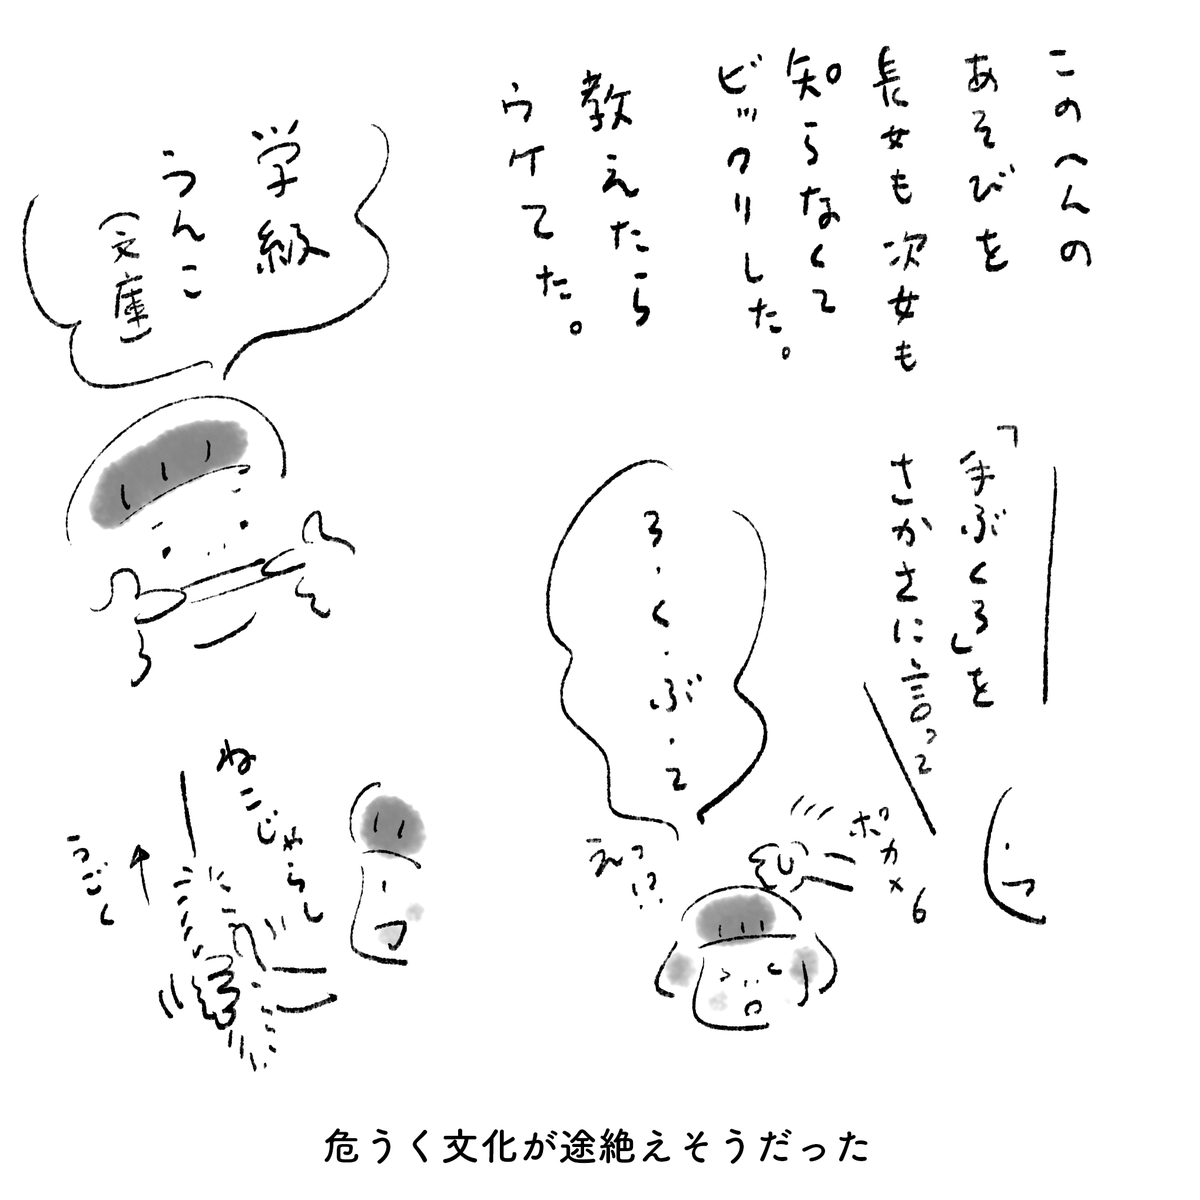 このへんの
あそびを
長女も次女も
知らなくて
ビックリした。
教えたら
ウケてた。
「手ぶくろ」を
さかさに言って
ろ・く・ぶ・て
ポカ×6
えっ!?
学級
うんこ
(文庫)
ねこじゃらし
うごく
危うく文化が途絶えそうだった